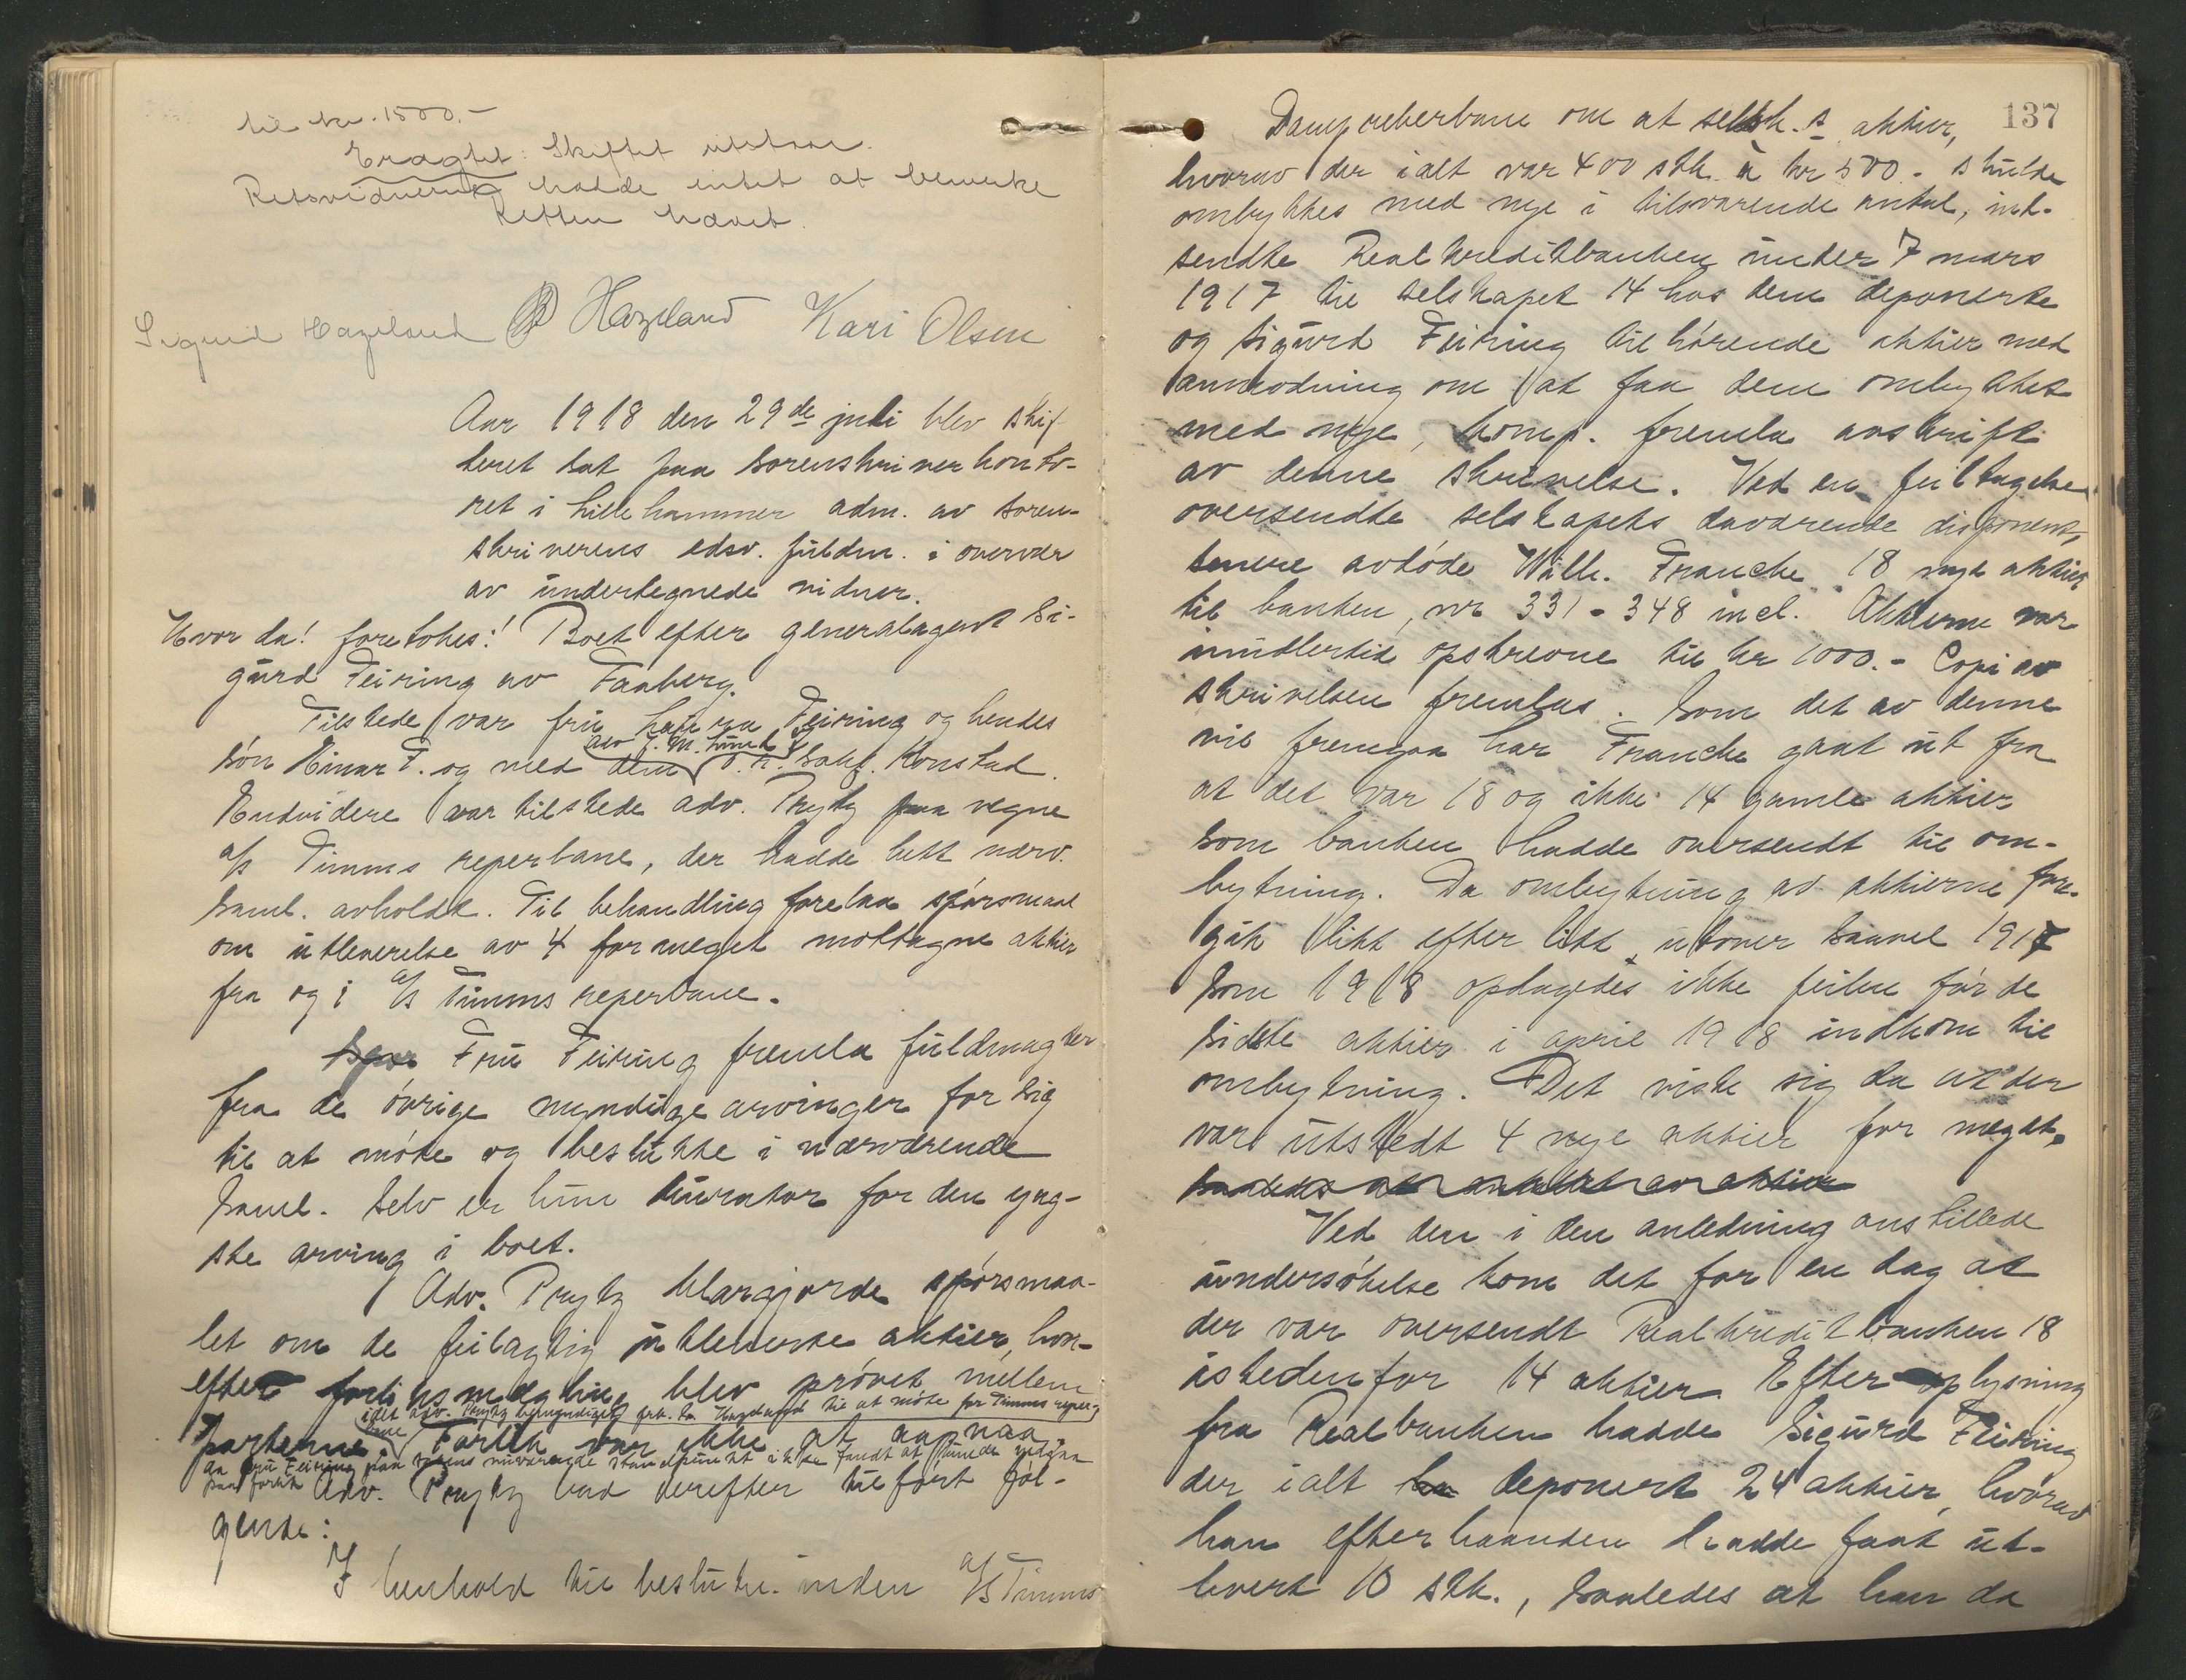 til kr. 1500.-
Eragtet: Skiftet utstaar.
Retsvidnerne hadde intet at bemerke
Retten hævet.
Sigurd Hazeland Hazeland Kari Olsen
Aar 1918 den 29de juli blev skif-
teret sat paa sorenskriverkonto-
ret i Lillehammer adm. av soren-
skriverens edsv. fuldm. i overvær
av undertegnede vidner.
Hvor da! foretokes: Boet efter generalagent Si-
gurd Feiring av Faaberg.
Tilstede var fru Feiring og hendes
søn Einar F. og med dem adv. J. M. Lund o.r. sakf. Konstad.
Endvidere var tilstede adv. Prytz paa vegne
a/s Timms reperbane, der hadde bett nærv.
saml. avholdt. Til behandling forelaa spørsmaal
om utleverelse av 4 formeget mottagne aktier
fra og i a/s Timms reperbane.
Fru Feiring fremla fuldmagter
fra de øvrige myndige arvinger for sig
til at møte og beslutte i nærværende
saml. Selv er hun kurator for den yng-
ste arving i boet.
Adv. Prytz klargjorde spørsmaa-
let om de feilagtig utleverte aktier, hvor-
efter forliksmægling blev prøvet mellem
idet adv. Prytz bemyndiget frk. Hazeland til at møte for Timms reper-
bane
parterne. Forlik var ikke at opnaa,
da fru Feiring paa sakens nuværende standpunkt ikke fandt at kunde indgaa
paa forlik Adv. Prytz bad derefter tilført føl-
gende:
I henhold til beslutn. inden a/s Timms
137
Dampreberbane om at selsk.s aktier,
hvorav der ialt var 400 stk. à kr 500.- skulde
ombyttes med nye i tilsvarende antal, ind-
sendte Realkreditbanken under 7 mars
1917 til selskapet 14 hos dem deponerte
og Sigurd Feiring tilhørende aktier med
anmodning om at faa dem ombyttet
med nye, komp. fremla avskrift
av denne skrivelse. Ved en feiltagelse
oversendte selskapets daværende disponent,
senere avdøde Wilh. Francke 18 nye aktier
til banken, nr 331-348 incl. Aktierne var
imidlertid opskrevne til kr 1000.- Copi av
skrivelsen fremlas. Som det av denne
vil fremgaa har Francke gaat ut fra
at det var 18 og ikke 14 gamle aktier
som banken hadde oversendt til om-
bytning. Da ombytning av aktierne fore-
gik litt efter litt utover saavel 1917
som 1918 opdagedes ikke feilen før de
sidste aktier i april 1918 indkom til
ombytning. Det viste sig da at der
var utstedt 4 nye aktier for meget.
Ved den i den anledning anstillede
undersøkelse kom det for en dag at
der var oversendt Realkreditbanken 18
istedenfor 14 aktier. Efter oplysning
fra Realbanken hadde Sigurd Feiring
der ialt deponert 24 aktier, hvorav
han efterhaanden hadde faat ut-
levert 10 stk., saaledes at han da